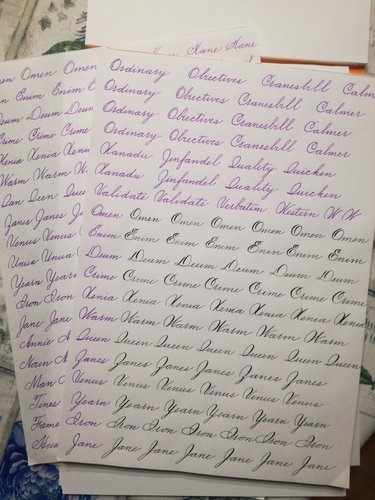 Kane Kane
Omen Omen
Enim Enim
Deum Deum
Crime Crime
Xenia Xenia
Warm Warm
Queen
Janes Janes
Venus Venus
Unica
Yearn Yearn
Iron Iron
Jane Jane
Annie
Noun
Man
Times
Frame
Ordinary Obiectives Cranesbill Calmer
Ordinary Obiectives Cranesbill Calmer
Ordinary Obiectives Cranesbill Calmer
Ordinary Obiectives Cranesbill Calmer
Xanadu Zinfandel Quality Quicken
Xanadu Zinfandel Quality Quicken
Validate Validate Verbatim Western W W
Omen Omen Omen Omen Omen Omen
Enim Enim Enim Enim Enim Enim
Deum Deum Deum Deum Deum Deum
Crime Crime Crime Crime Crime Crime
Xenia Xenia Xenia Xenia Xenia Xenia
Warm Warm Warm Warm Warm Warm
Queen Queen Queen Queen Queen Queen
Janes Janes Janes Janes Janes Janes
Venus Venus Venus Venus Venus Venus
Yearn Yearn Yearn Yearn Yearn Yearn
Iron Iron Iron Iron Iron Iron
Jane Jane Jane Jane Jane Jane